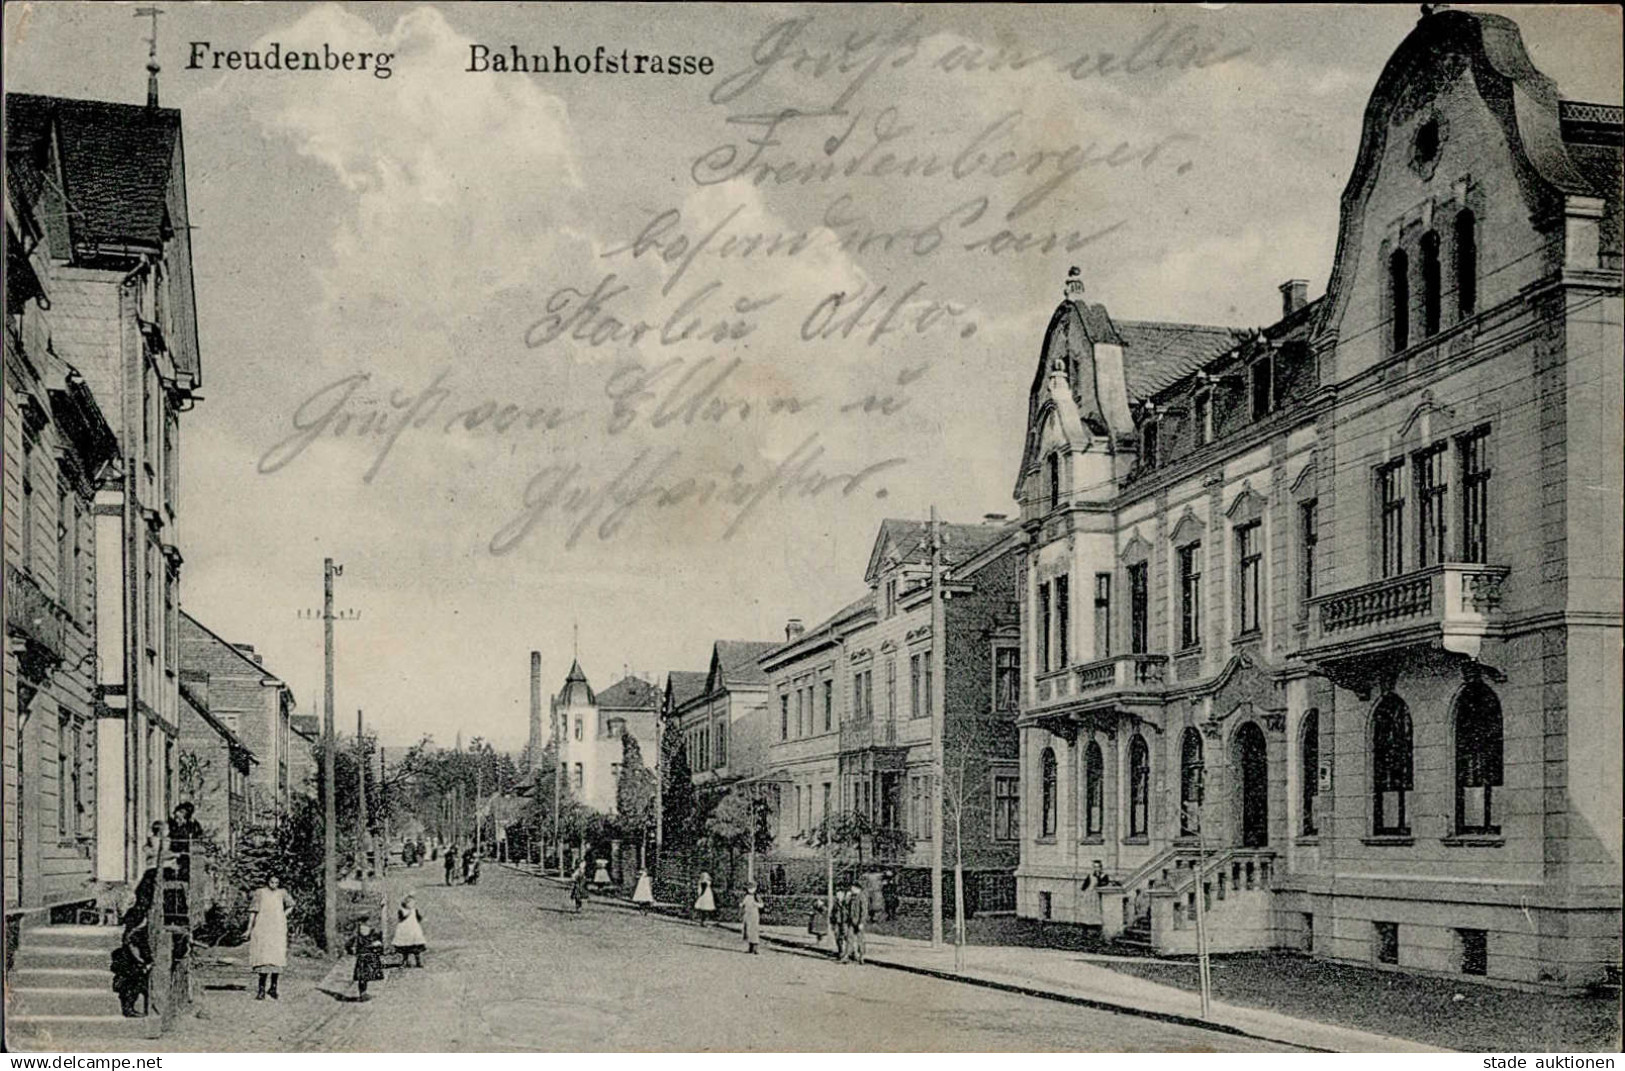 Freudenberg Bahnhofstrasse
Gruß an alle
Freudenberger.
besonders an
Otto.
Gruß von Eltern u
Geschwister.
stade auktionen